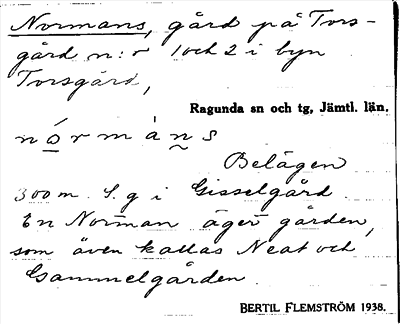 Normans, gård på Tors-
gård n:r 1 och 2 i byn
Torsgård,
Ragunda sn och tg, Jämtl. län.
nórmàns
Belägen
300 m. S. g i Gisselgård.
En Norman äger gården,
som även kallas Neat och
Gammelgården.
BERTIL FLEMSTRÖM 1938.